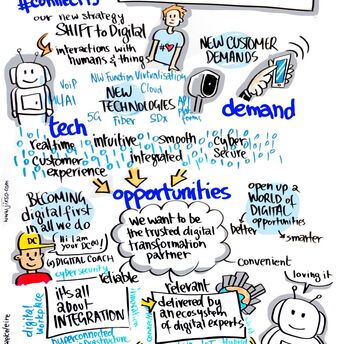 #connects
our new strategy
SHIFT to Digital
interactions with
humans & things
NEW CUSTOMER
DEMANDS
VoIP
NW Function Virtualisation
Cloud
NEW
TECHNOLOGIES
5G
Fiber
SDx
demand
tech
realtime
intuitive
smooth
cyber
secure
customer
experience
integrated
opportunities
BECOMING
digital first
in all we do
we want to be
the trusted digital
transformation
partner
open up a
WORLD of
DIGITAL
opportunities
better
smarter
Hi I am
your DC60!
DC
DIGITAL COACH
cybersecurity
reliable
convenient
loving it
relevant
it's all
about
INTEGRATION
delivered by
an ecosystem
of digital experts
digital
workplace
hyperconnected
www.jixso.com